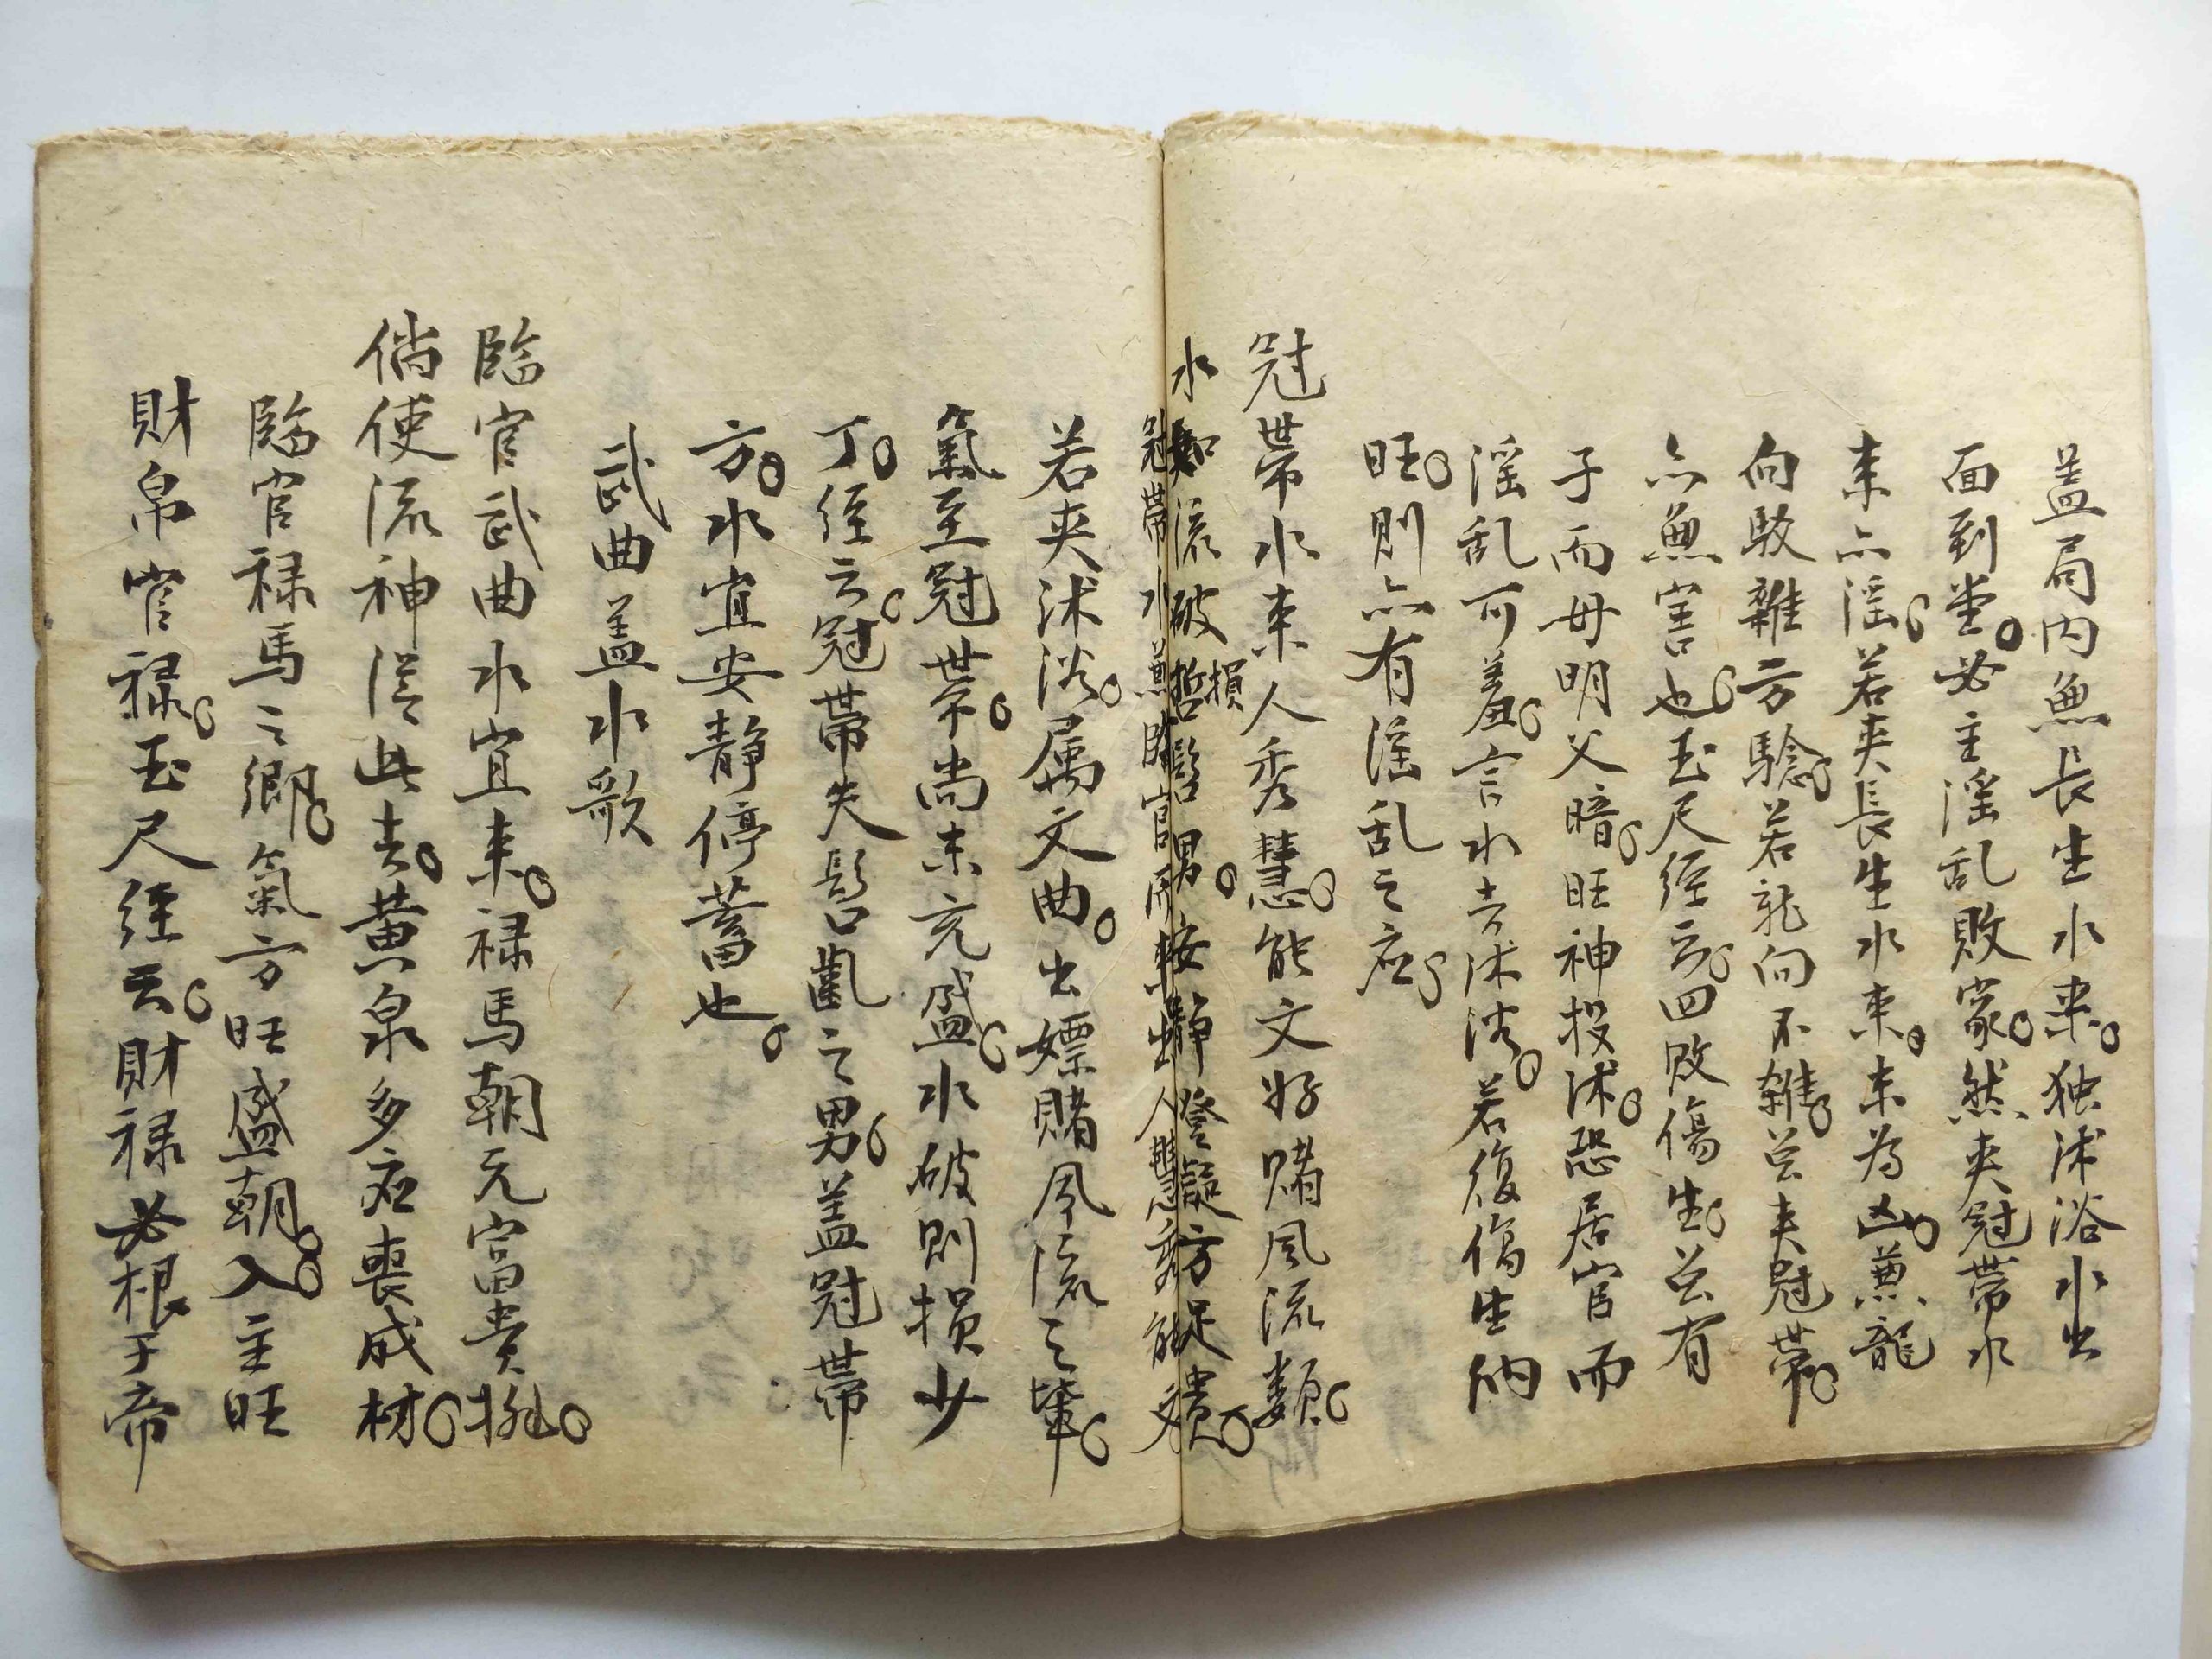 盖局内無長生水来。独沭浴水出
面到堂。必主滛乱敗家。然夹冠帶水
来亦滛。若夹長生水来。未為凶。兼龍
向收雜方騐。若龍向不雜。总夹冠帶。
亦無害也。玉尺经云。四敗傷生。总有
子而母明父暗。旺神投沭。恐居官而
滛乱可羞。言水去沭浴。若復傷生納
旺。则亦有滛乱之应。
冠帶水来人秀慧。能文好赌風流類。
水如流破損髫男。安靜澄凝方足貴。
冠帶水兼臨官所来出人慧秀能文
若夹沭浴。属文曲。出嫖賭風流之輩。
氣至冠带。尚未充盛。水破则损少
丁。经云。冠帶失髫齓之男。盖冠帶
方。水宜安静停蓄也。
武曲盖水歌
臨官武曲水宜来。禄馬朝元富貴排。
倘使流神從此去。黄泉多应喪成材。
臨官禄馬之鄉。氣方旺盛朝。入主旺
財帛官禄。玉尺经云。財禄必根于帝